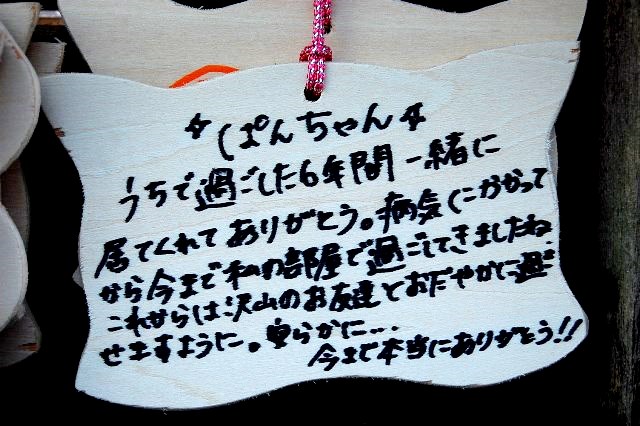 ☆ぽんちゃん☆
うちで過ごした6年間一緒に
居てくれてありがとう。病気にかかって
から今まで私の部屋で過ごしてきましたね
これからは沢山のお友達とおだやかに過ご
せますように。安らかに...
今まで本当にありがとう!!